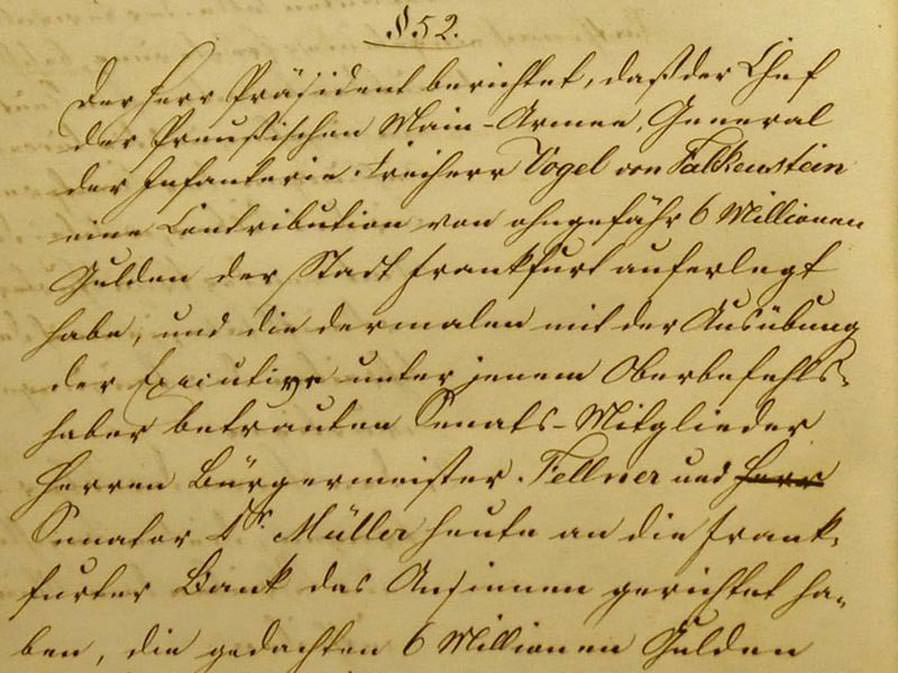 § 52.
Der Herr Präsident berichtet, daß der Chef
der Preußischen Main-Armee, General
der Infanterie Freiherr Vogel von Falkenstein
eine Contribution von ohngefähr 6 Millionen
Gulden der Stadt Frankfurt auferlegt
habe, und die dermalen mit der Ausübung
der Executive unter jenem Oberbefehls-
haber betrauten Senats-Mitglieder
Herren Bürgermeister Fellner und Herr
Senator Dr. Müller heute an die Frank-
furter Bank das Ansinnen gerichtet ha-
ben, die gedachten 6 Millionen Gulden